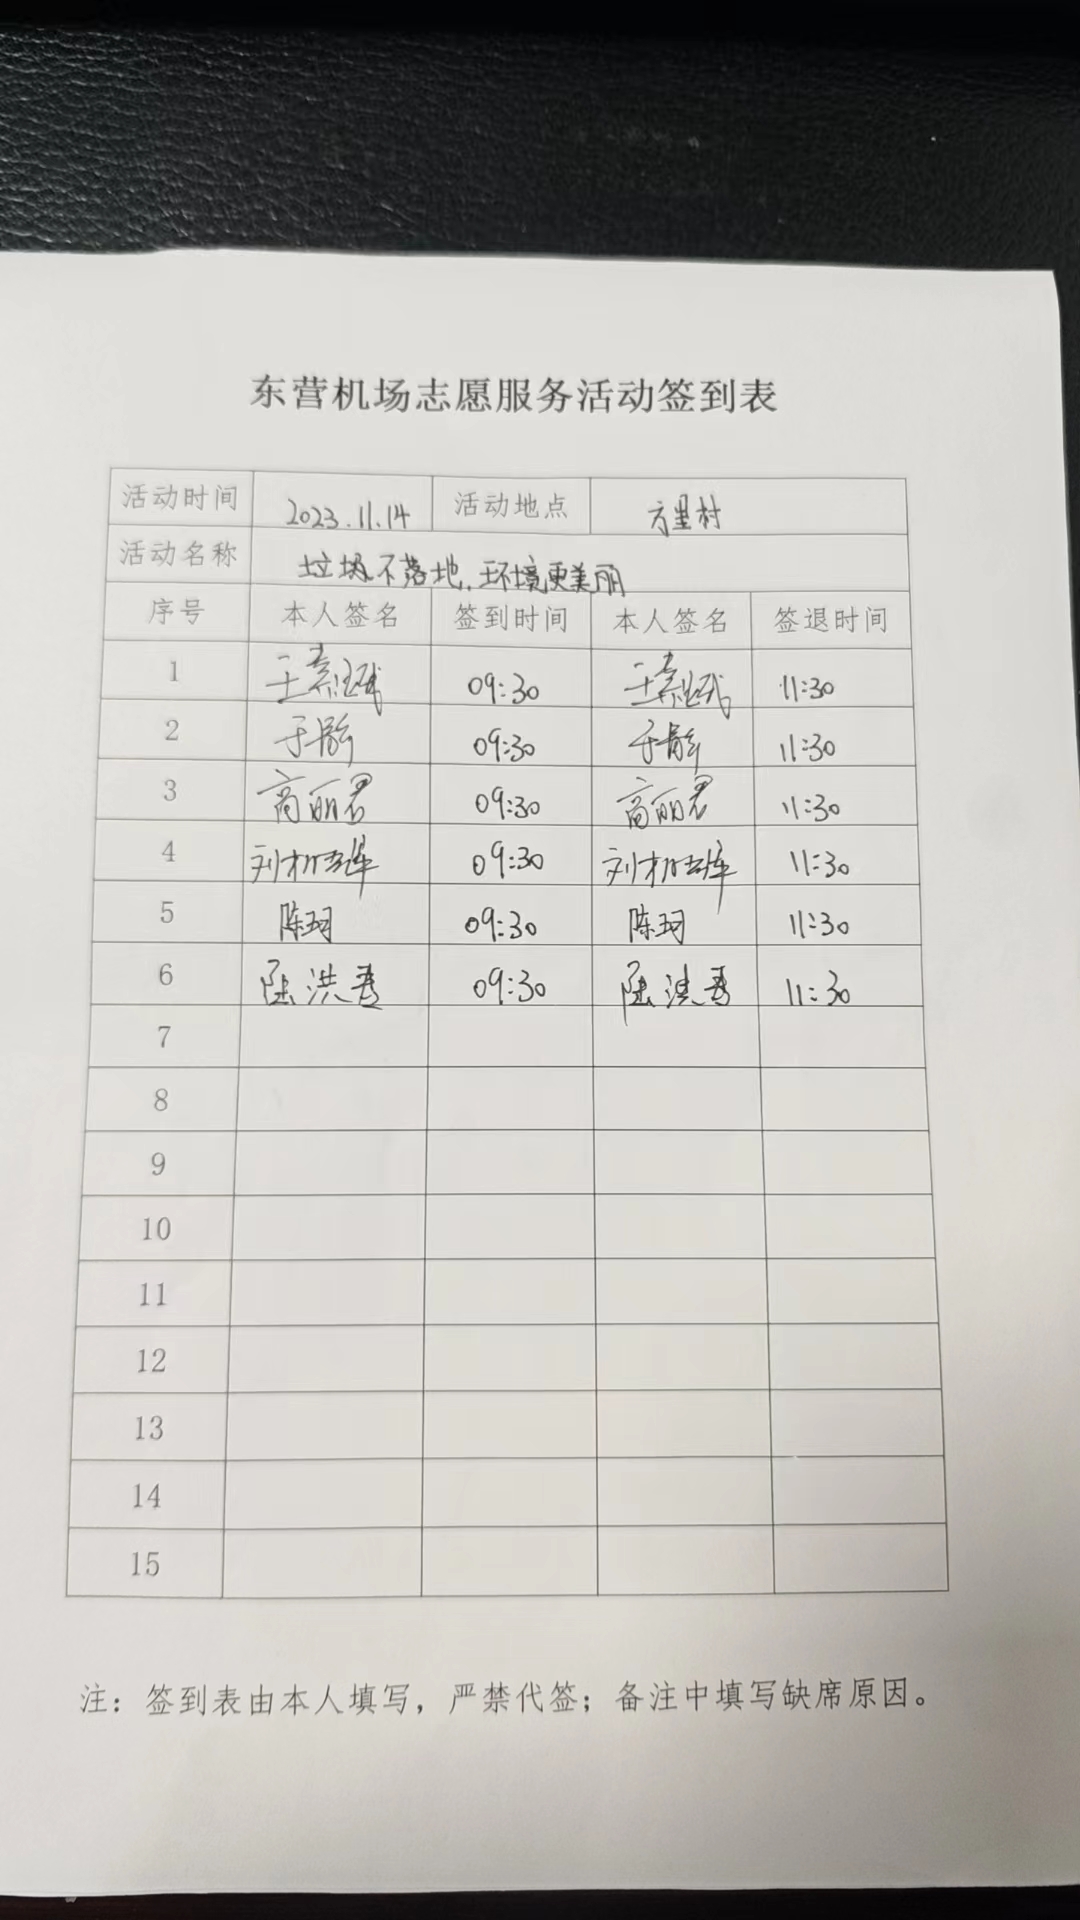 东营机场志愿服务活动签到表
活动时间 2023.11.14 活动地点 方里村
活动名称 垃圾不落地,环境更美丽
序号 本人签名 签到时间 本人签名 签退时间
1 王 09:30 王 11:30
2 于静 09:30 于静 11:30
3 高丽君 09:30 高丽君 11:30
4 刘 09:30 刘 11:30
5 陈珂 09:30 陈珂 11:30
6 陆洪 09:30 陆洪 11:30
7
8
9
10
11
12
13
14
15
注：签到表由本人填写，严禁代签；备注中填写缺席原因。